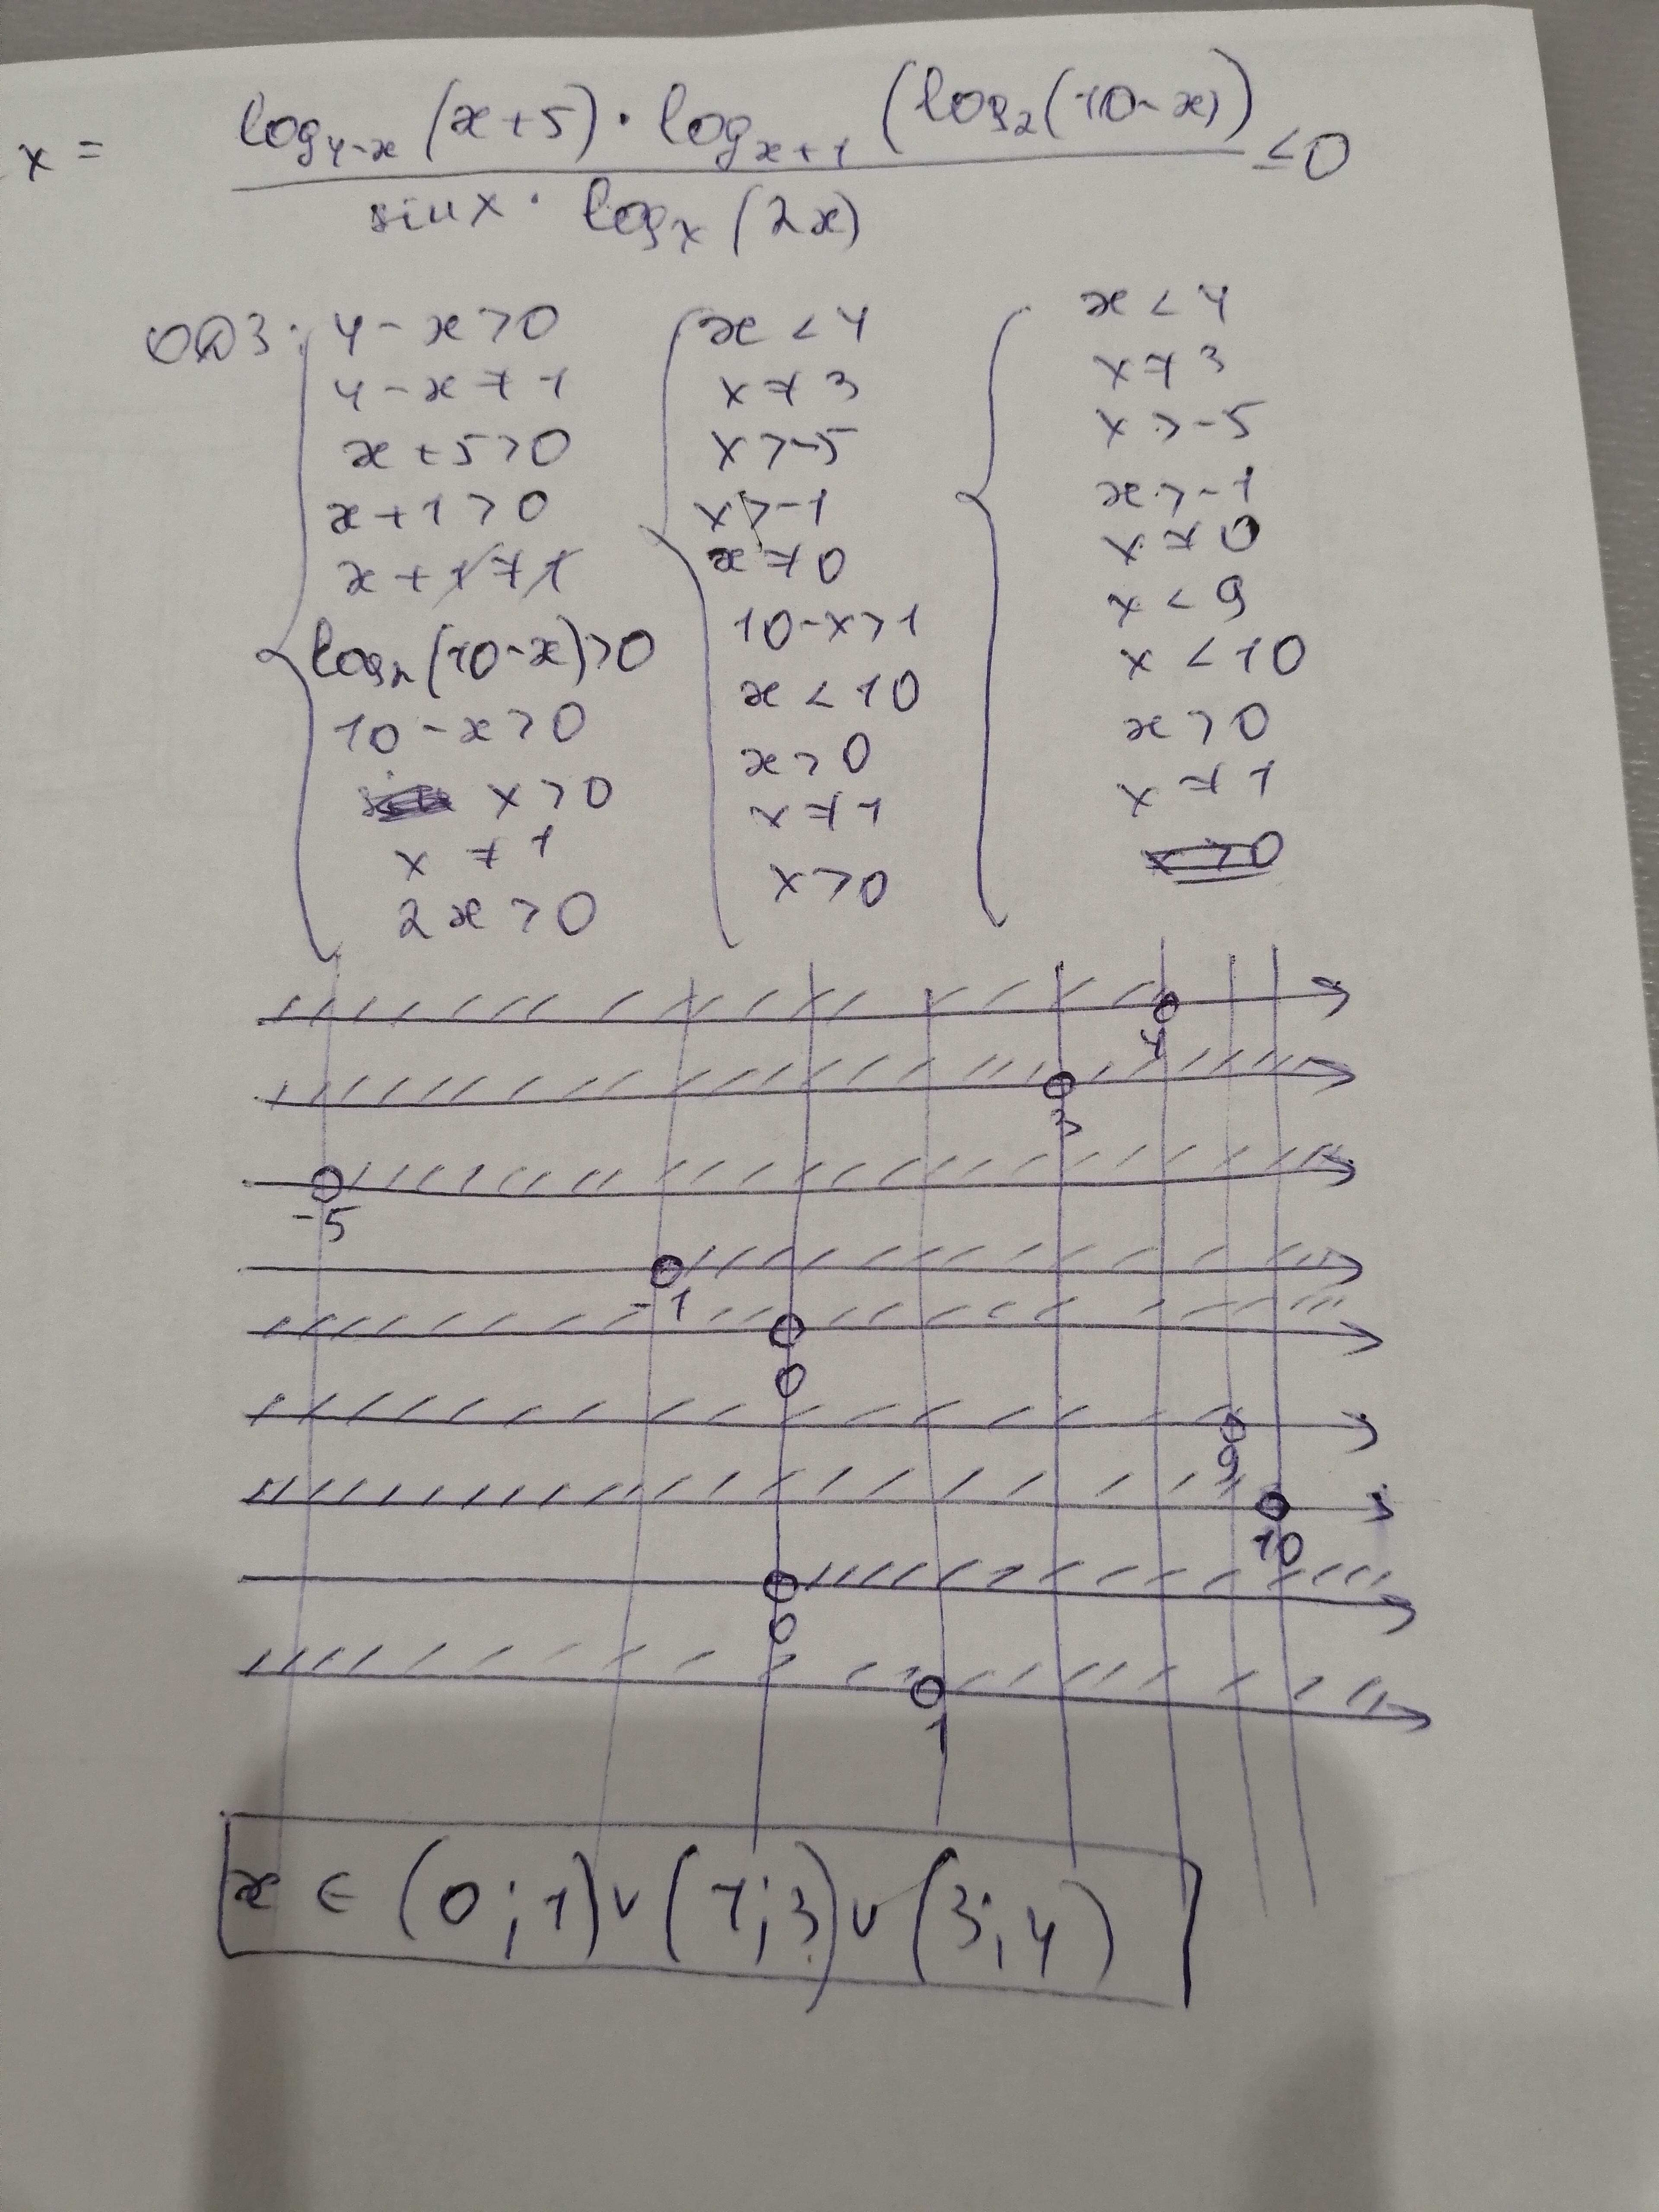 x = log₄₋ₓ(x+5) · logₓ₊₁(log₂(10-x)) ≤0
sinx · logₓ(2x)
ОДЗ: 4-x>0
4-x≠1
x+5>0
x+1>0
x+1≠1
log₂(10-x)>0
10-x>0
x>0
x≠1
2x>0
x<4
x≠3
x>-5
x>-1
x≠0
10-x>1
x<10
x>0
x≠1
x>0
x<4
x≠3
x>-5
x>-1
x≠0
x<9
x<10
x>0
x≠1
x>0
4
3
-5
-1
0
9
10
0
1
x ∈ (0;1)∪(1;3)∪(3;4)